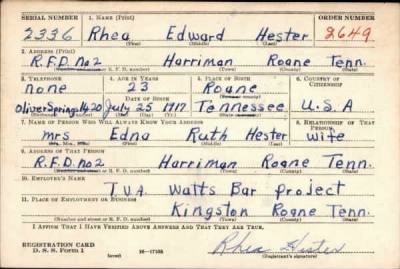 SERIAL NUMBER 1. NAME (Print) ORDER NUMBER
2336 Rhea Edward Hester 2649
(First) (Middle) (Last)
2. ADDRESS (Print)
R.F.D. no 2 Harriman Roane Tenn.
(Number and street or R. F. D. number) (Town) (County) (State)
3. TELEPHONE 4. AGE IN YEARS 5. PLACE OF BIRTH 6. COUNTRY OF CITIZENSHIP
none 23 Roane
DATE OF BIRTH
Oliver Springs July 25 1917 Tennessee U.S.A
7. NAME OF PERSON WHO WILL ALWAYS KNOW YOUR ADDRESS 8. RELATIONSHIP OF THAT PERSON
mrs Edna Ruth Hester wife
(Mr., Mrs., Miss) (First) (Middle) (Last)
9. ADDRESS OF THAT PERSON
R.F.D. no 2 Harriman Roane Tenn.
(Number and street or R. F. D. number) (Town) (County) (State)
10. EMPLOYER'S NAME
T.V.A. Watts Bar Project
11. PLACE OF EMPLOYMENT OR BUSINESS
Kingston Roane Tenn.
(Number and street or R. F. D. number) (Town) (County) (State)
I AFFIRM THAT I HAVE VERIFIED ABOVE ANSWERS AND THAT THEY ARE TRUE.
REGISTRATION CARD
D. S. S. Form 1 (over) Rhea Hester
(Registrant's signature)